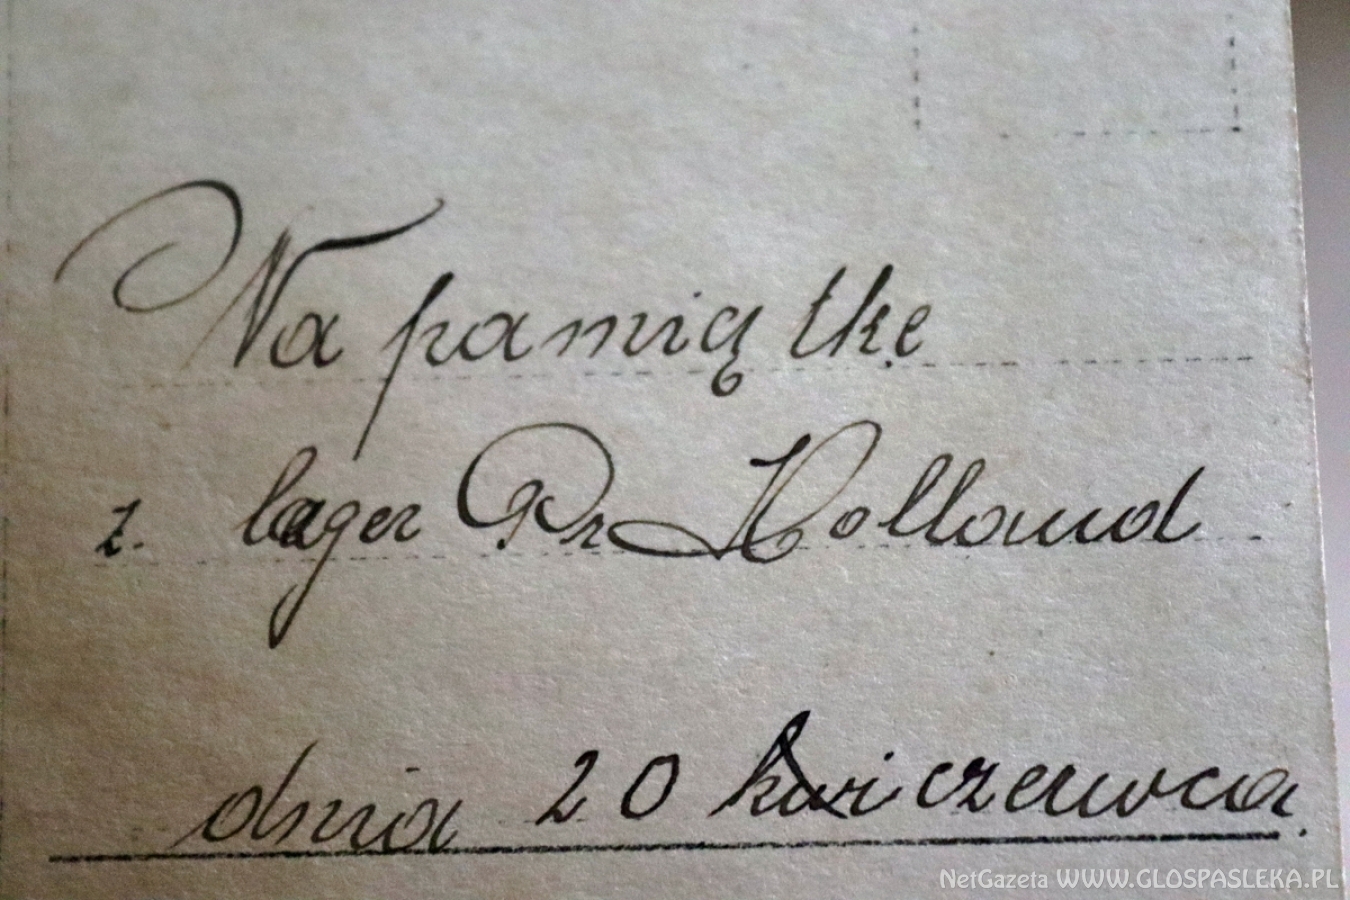 Na pamiątkę
z. lager Pr Holland
dnia 20 kwi czerwca.
NetGazeta WWW.GLOSPASLEKA.PL